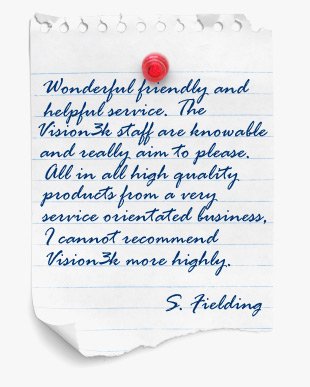 Wonderful friendly and
helpful service. The
Vision3k staff are knowable
and really aim to please.
All in all high quality
products from a very
service orientated business,
I cannot recommend
Vision3k more highly.
S. Fielding